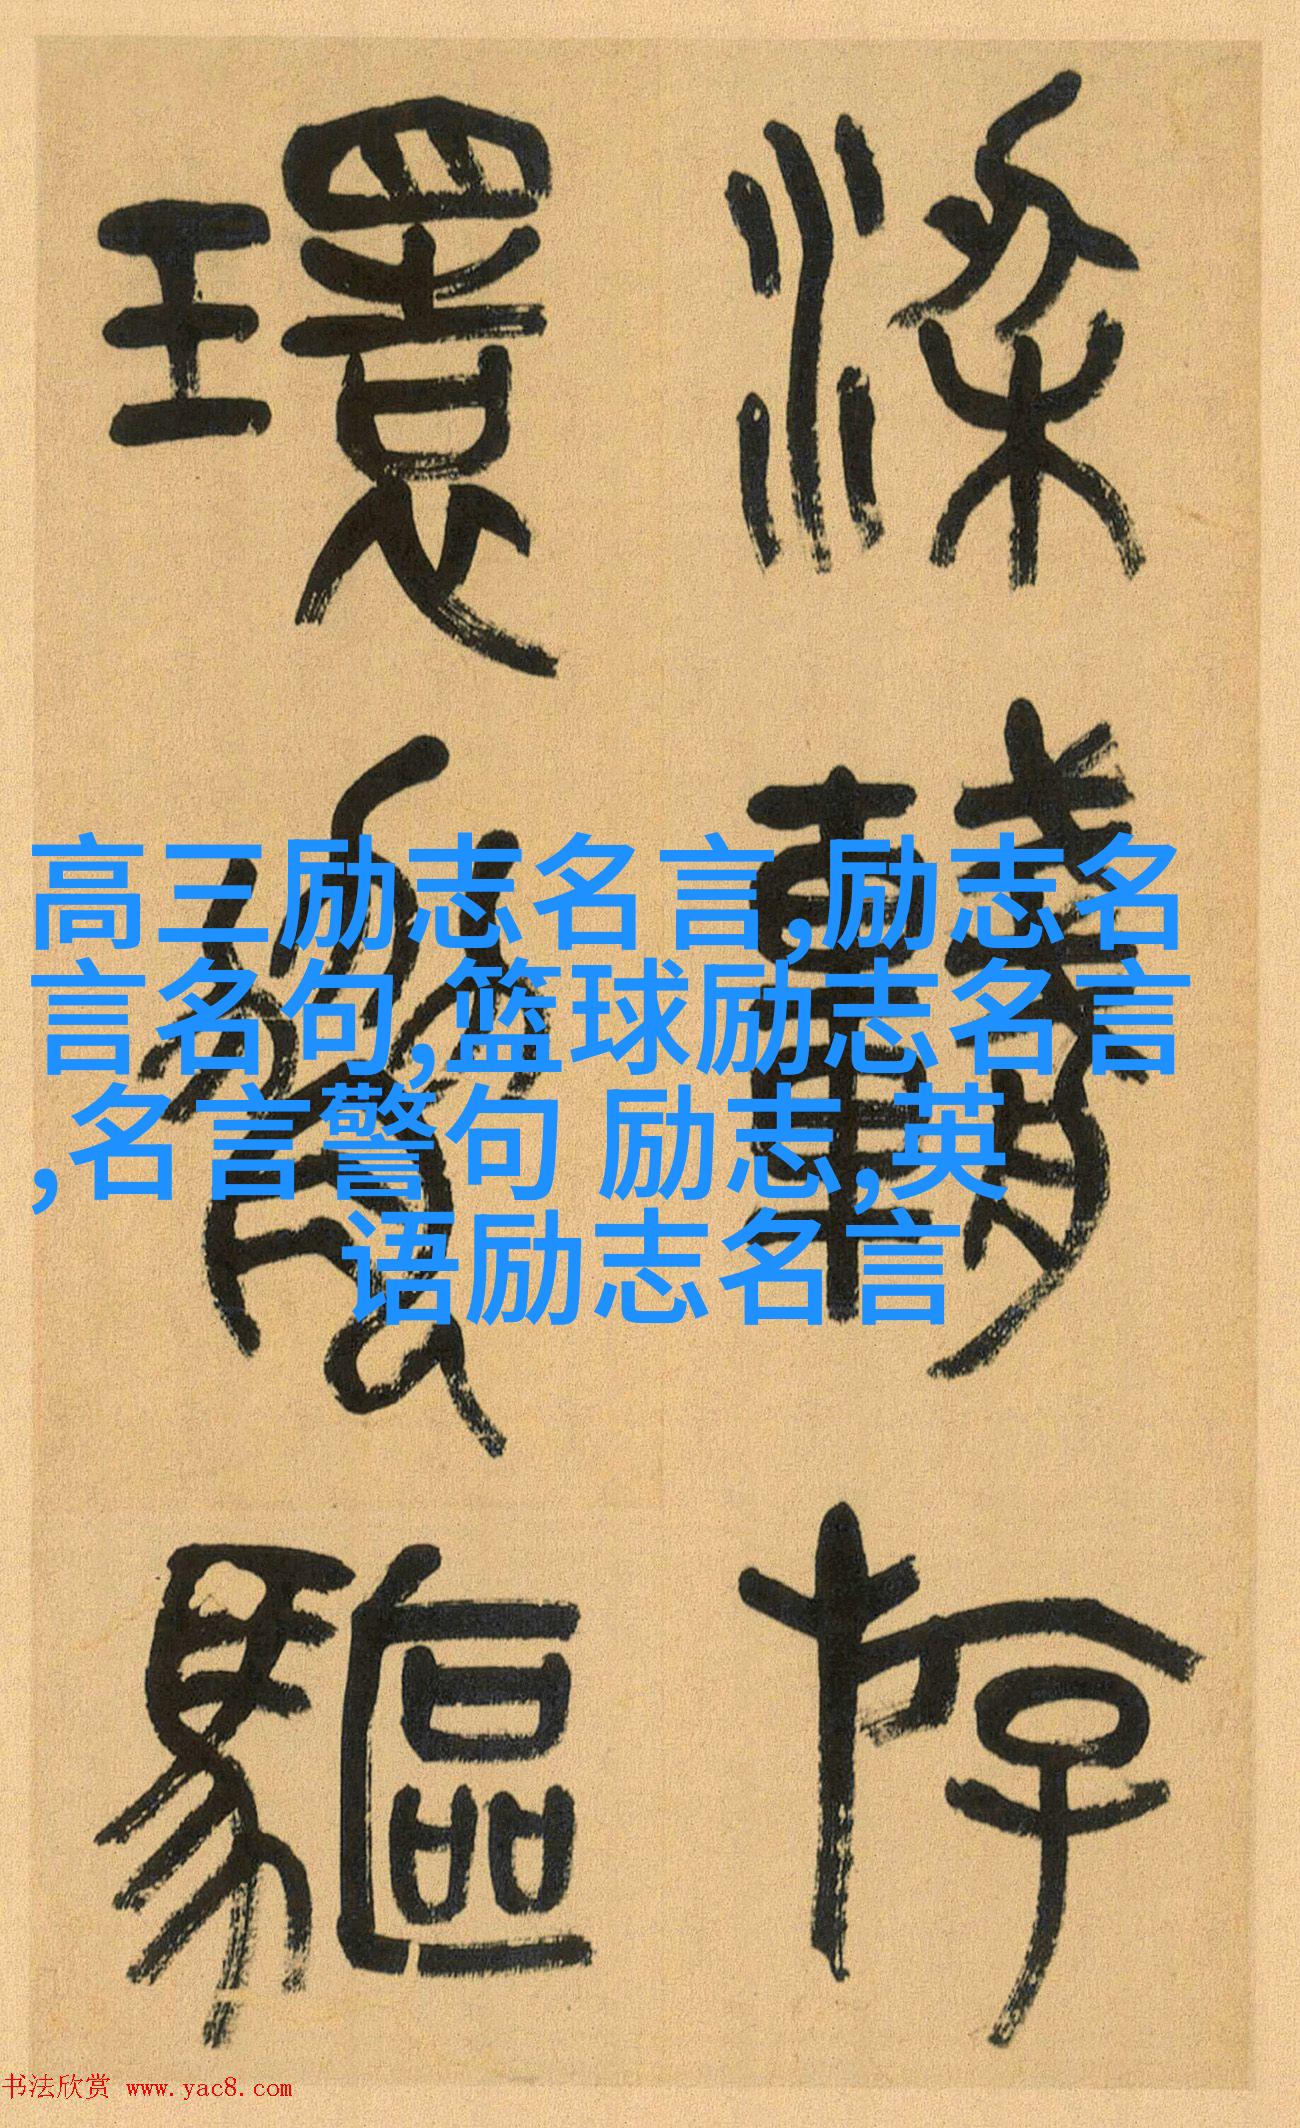 深
朝
存
環
餐
驅
高三励志名言,励志名
言名句,篮球励志名言
,名言警句 励志,英
语励志名言
书法欣赏 www.yac8.com